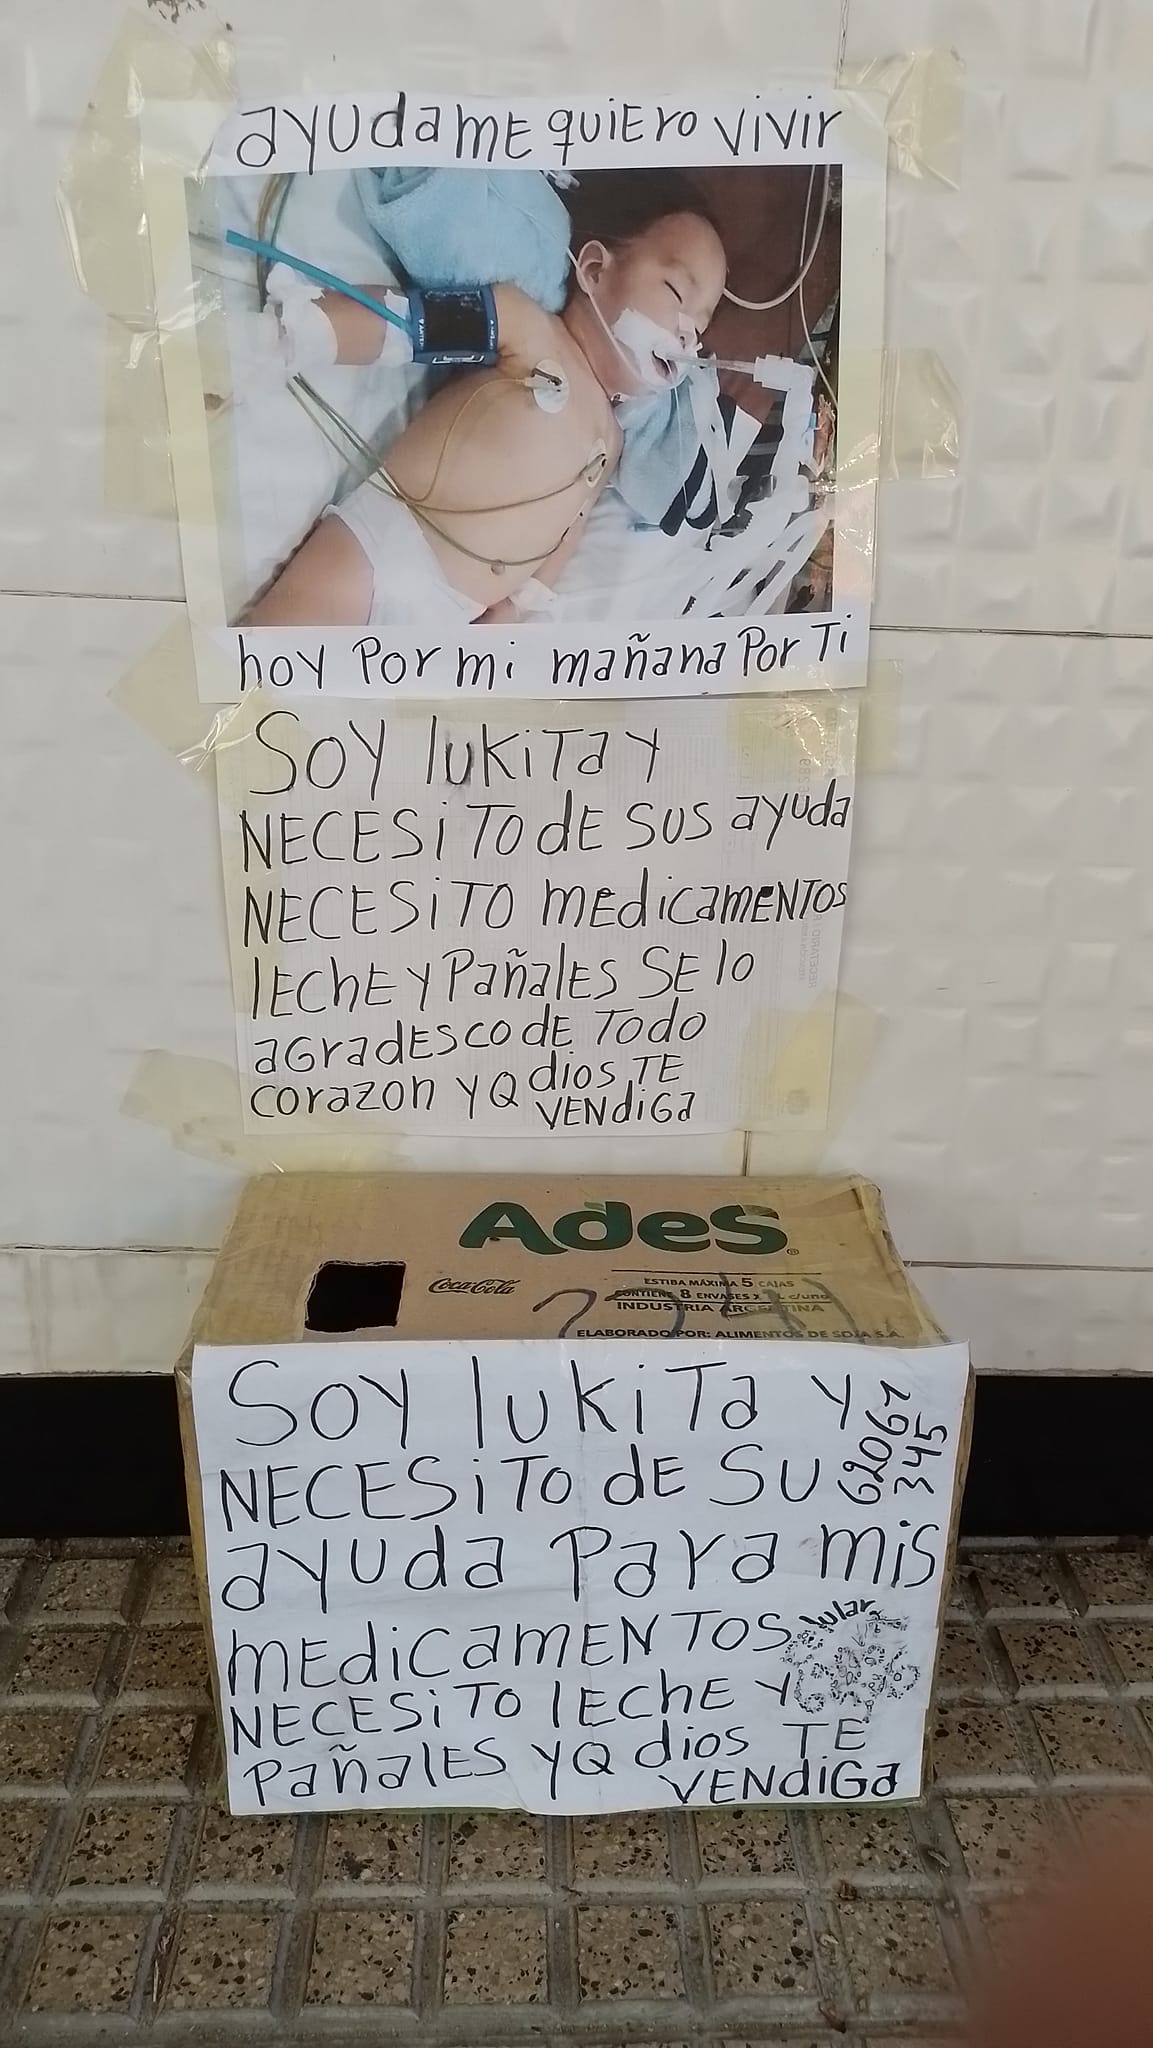 ayudaME quiEro vivir
hoy Por mi mañana Por Ti
Soy lukiTa y
NECESiTO dE SUS ayuda
NECESiTO mEdicamENTOS
lEchE y PañalES SE lo
aGradESco dE Todo
corazon y Q dios TE
VENdiGa
AdeS
Coca-Cola
ESTIBA MÁXIMA 5 CAJAS
CONTIENE 8 ENVASES X 1L c/uno
INDUSTRIA ARGENTINA
ELABORADO POR: ALIMENTOS DE SOJA S.A.
Soy lukiTa y
NECESiTO dE SU
ayuda Para mis
mEdicamENTOS
NECESiTO lEchE y
PañalES y Q dios TE
VENdiGa
62067
345